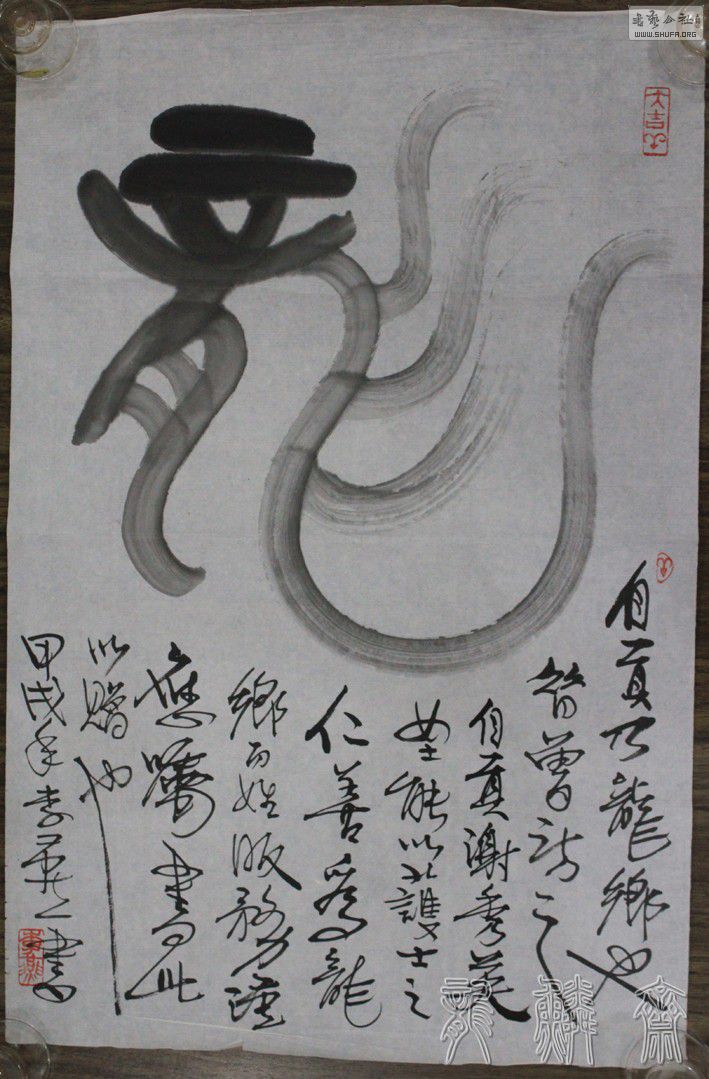 书艺公社
WWW.SHUFA.ORG
大吉羊
龍
自貢乃龍鄉也
曾訪之
自貢謝秀英
女士能以護士之
仁善爲龍
鄉百姓服務
應囑書此
以贈也
甲戌年李燕書
龍麟齋